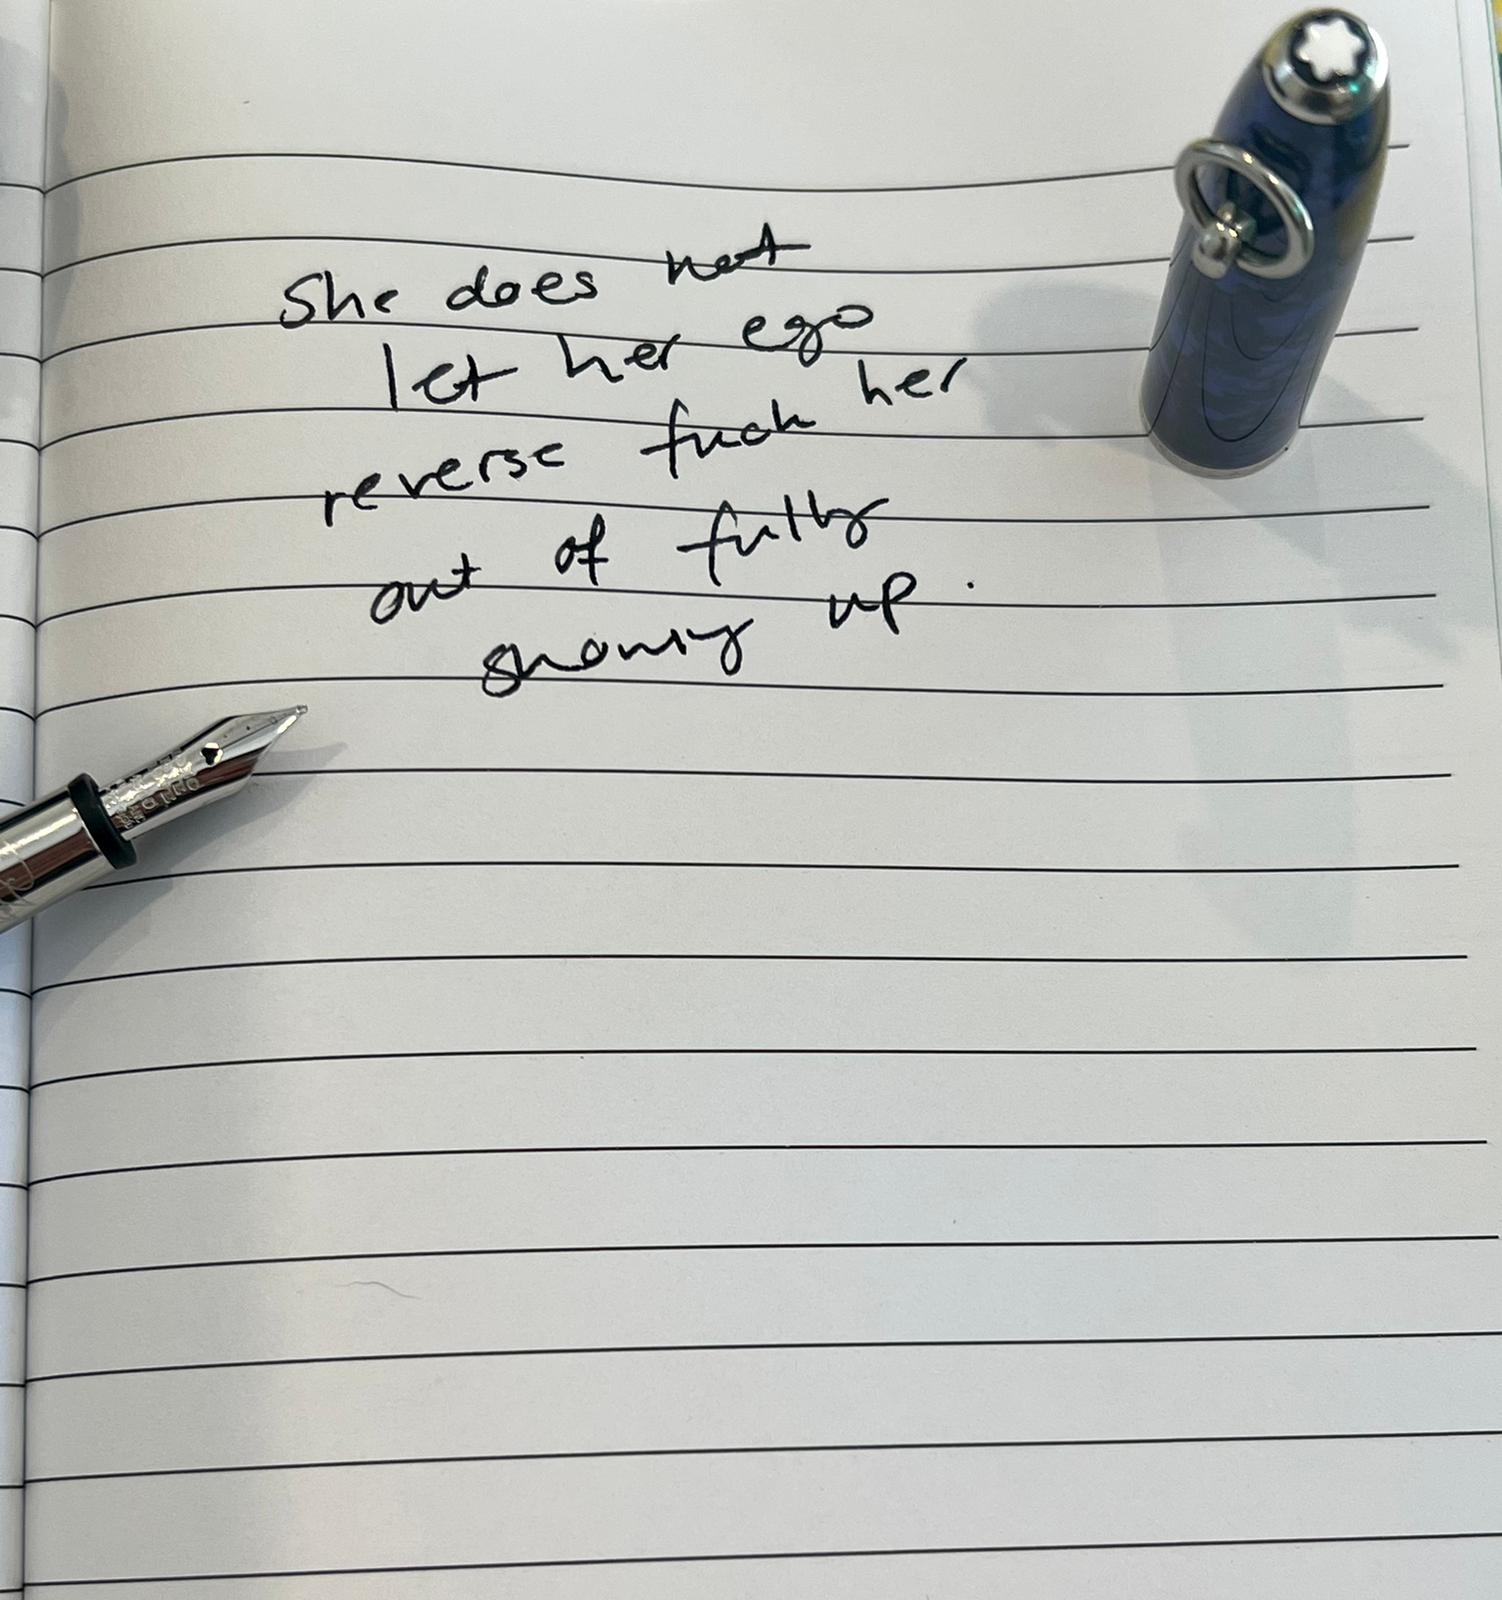 She does not
let her ego
reverse fuck her
out of fully
showing up.